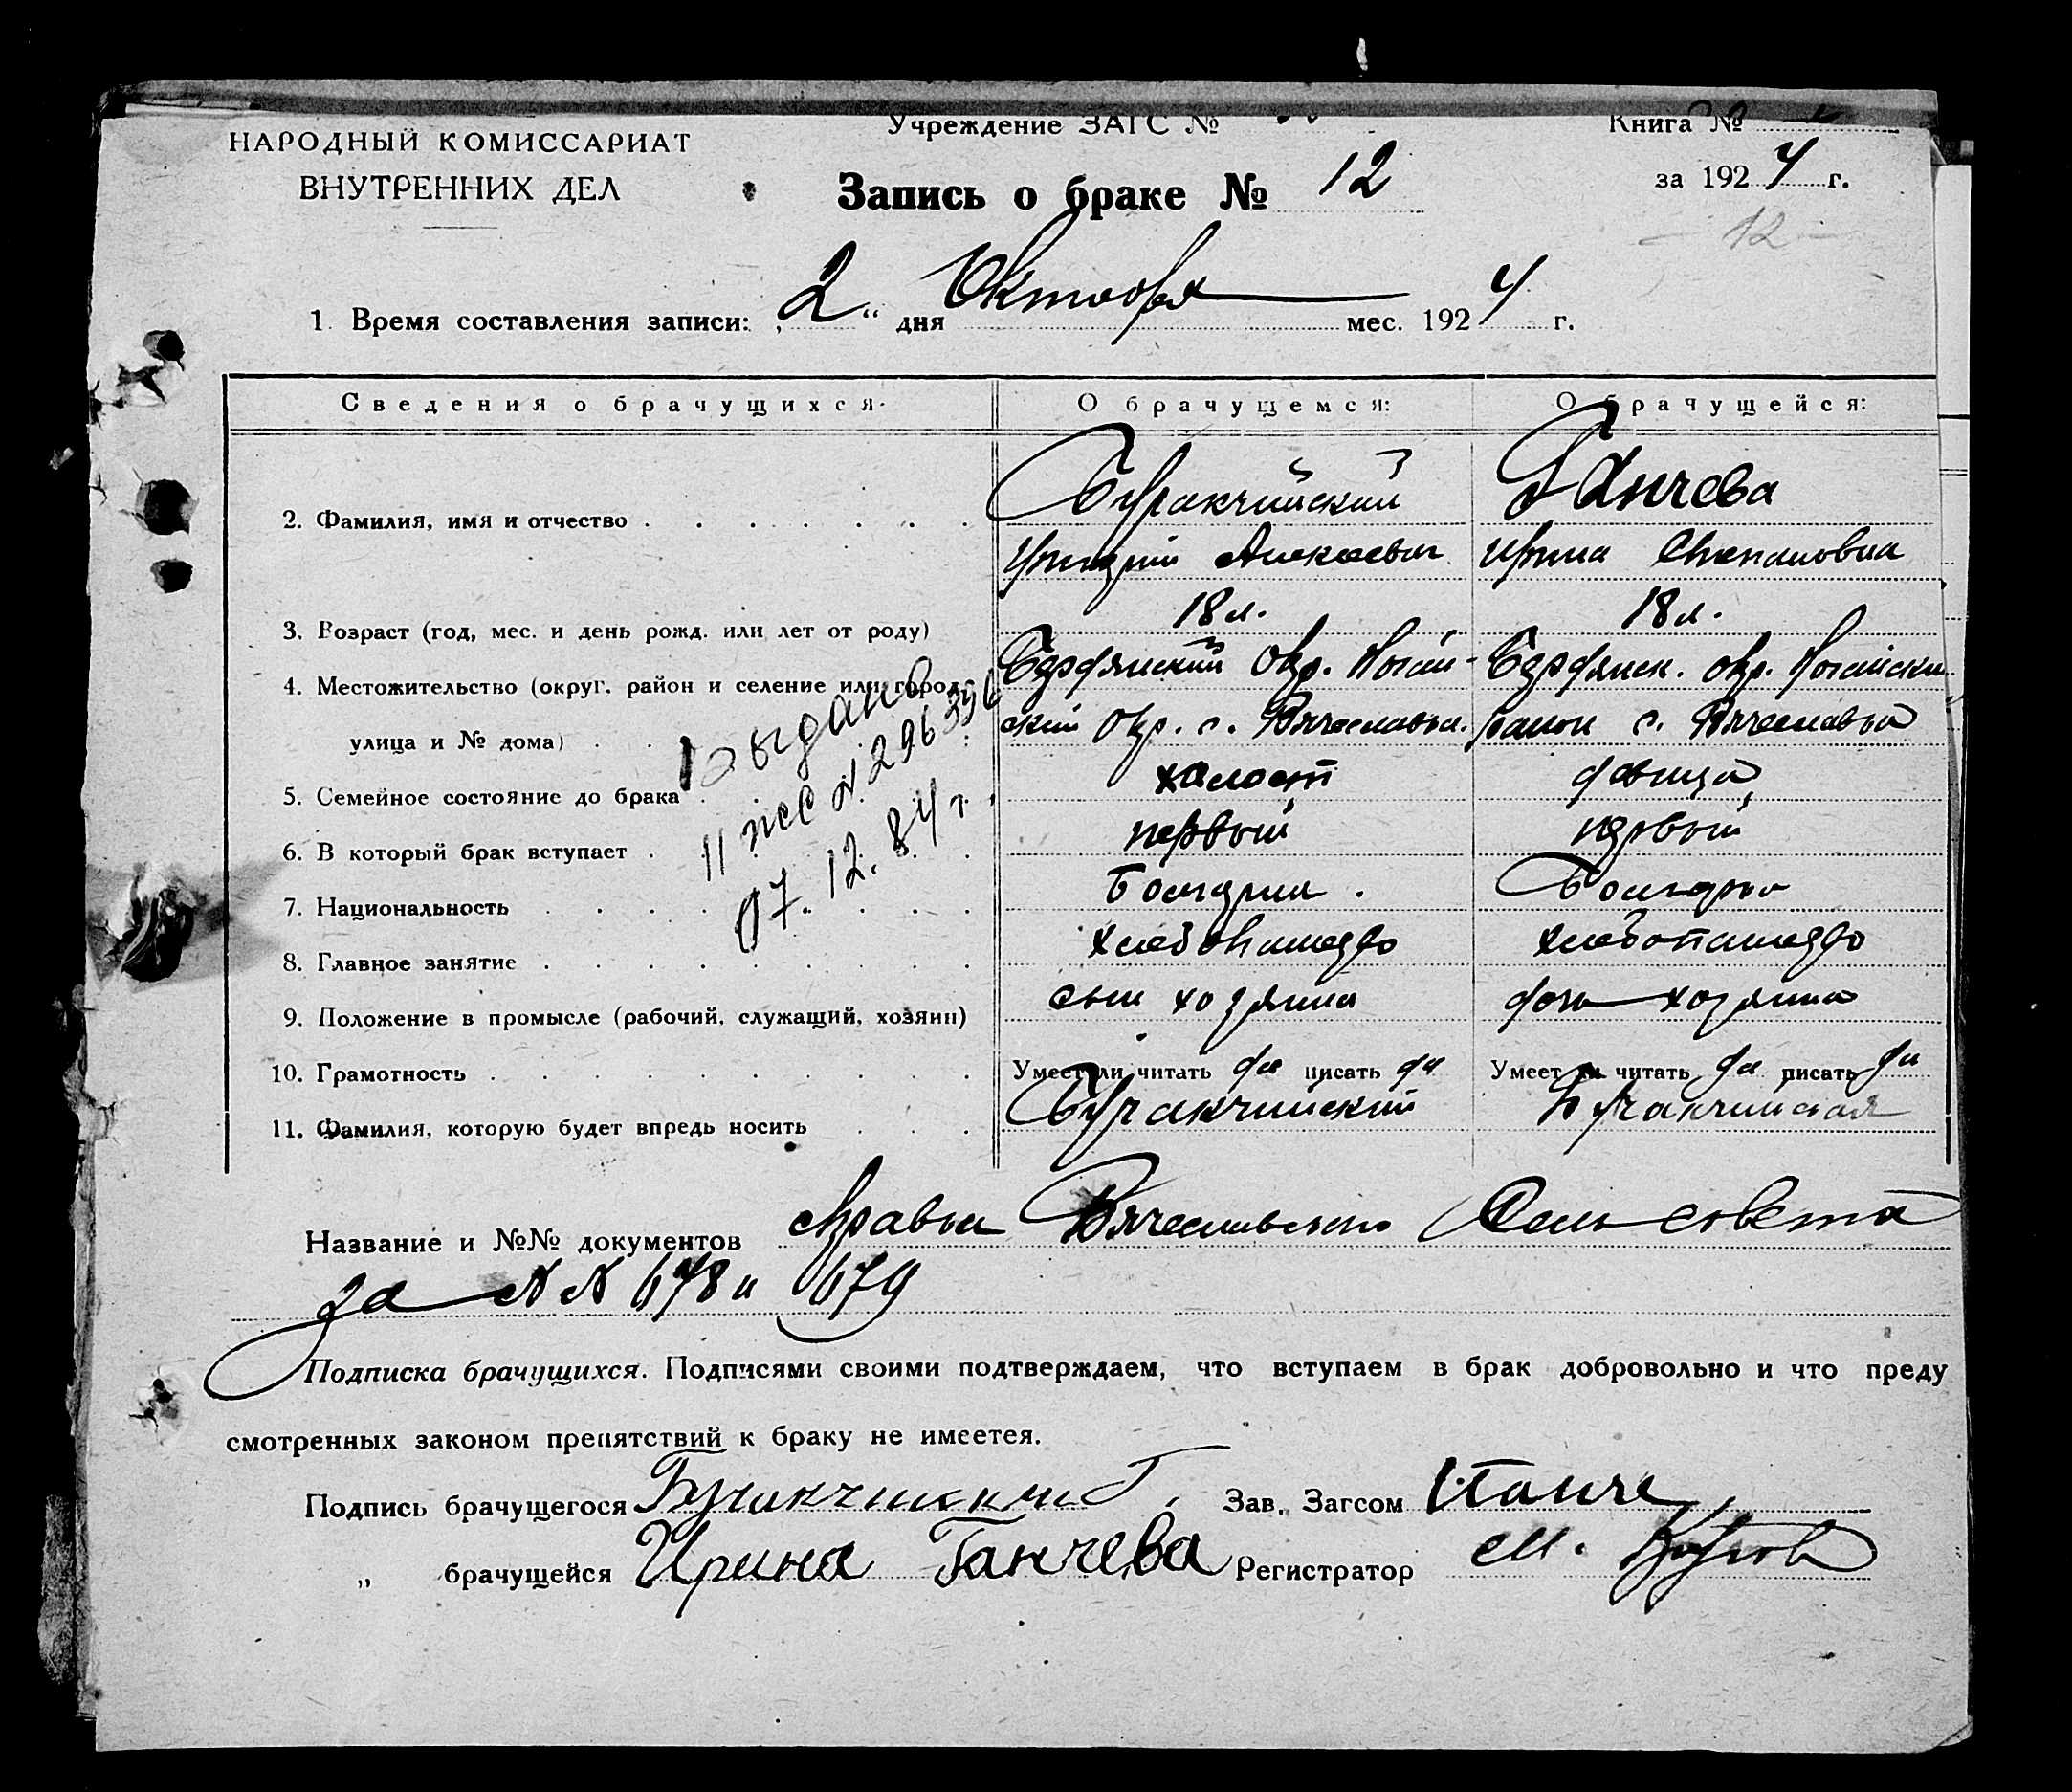 НАРОДНЫЙ КОМИССАРИАТ
ВНУТРЕННИХ ДЕЛ
Учреждение ЗАГС №
Книга №
Запись о браке № 12
за 1924 г.
12
1. Время составления записи: „2“ дня Октября мес. 1924 г.
Сведения о брачущихся. О брачущемся: О брачущейся:
2. Фамилия, имя и отчество Ганчева
Алексеевич Ирина Степановна
3. Возраст (год, мес. и день рожд. или лет от роду) 18 л. 18 л.
4. Местожительство (округ, район и селение или город, Бердянский Окр. Ногай- Бердянск. окр. Ногайский
улица и № дома) ский Окр. с. Вячеславка. район с. Вячеславка
5. Семейное состояние до брака холост девица
6. В который брак вступает первый первый
7. Национальность Болгарин. Болгарка
8. Главное занятие хлебопашество хлебопашество
9. Положение в промысле (рабочий, служащий, хозяин) сын хозяина дочь хозяина
10. Грамотность Умеет ли читать да писать да Умеет ли читать да писать да
11. Фамилия, которую будет впредь носить
Выдано
II ЖС № 296396
07.12.84 г.
Название и №№ документов справки Вячеславского Сельсовета
за №№ 678 и 679
Подписка брачущихся. Подписями своими подтверждаем, что вступаем в брак добровольно и что преду
смотренных законом препятствий к браку не имеется.
Подпись брачущегося Зав. Загсом
„ брачущейся Ирина Ганчева Регистратор М.